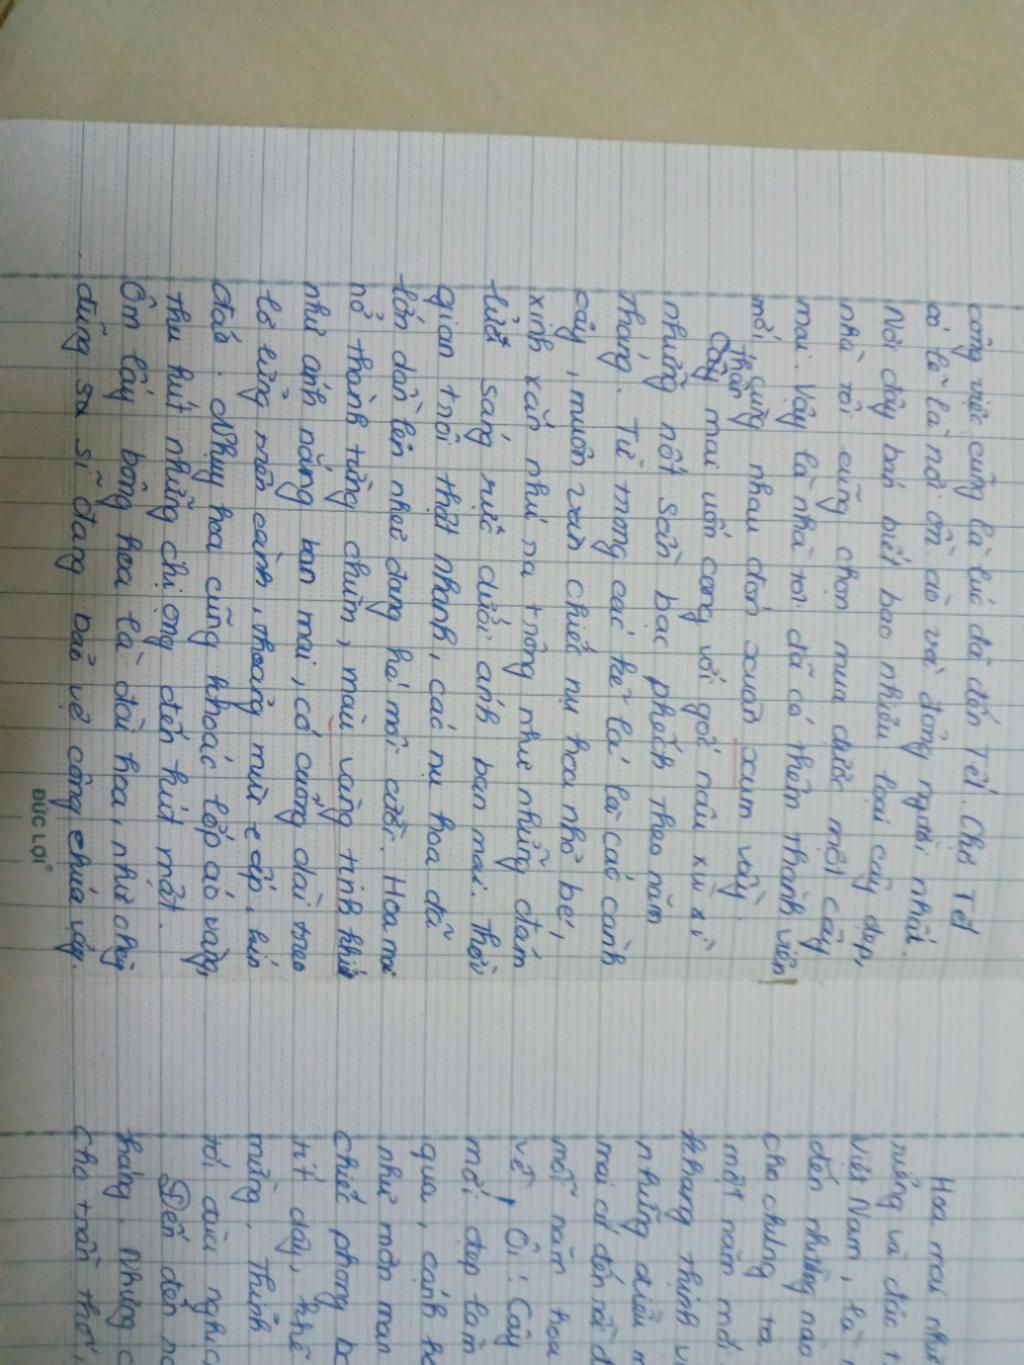 công việc cũng là lúc đã đến Tết. Chợ Tết
có lẽ là nơi ồn ào và đông người nhất.
Nơi đây bán biết bao nhiêu loại cây đẹp,
nhà tôi cũng chọn mua được một cây
mai. Vậy là nhà tôi đã có thêm thành viên
mới cùng nhau đón xuân xum vầy.
Thân
Cây mai uốn cong với gốc nâu xù xì
những nốt sần bạc phếch theo năm
tháng. Từ trong các kẽ lá là các cành
cây, muôn vàn chiếc nụ hoa nhỏ bé,
xinh xắn nhú ra trông như những đám
lửa sáng rực dưới ánh ban mai. Thời
gian trôi thật nhanh, các nụ hoa đã
lớn dần lên như đang hé môi cười. Hoa mai
nở thành từng chùm, màu vàng tinh khiết
như ánh nắng ban mai, có cuống dài treo
lơ lửng trên cành, thoảng mùi e ấp, kín
đáo. Nhụy hoa cũng khoác lớp áo vàng,
thu hút những chị ong đến hút mật.
Ôm lấy bông hoa là đài hoa, như chàng
dũng sĩ đang bảo vệ công chúa vậy.
ĐỨC LỢI
Hoa mai như
trưng và đặc t
Việt Nam, là
đến những nào
cho chúng ta
một năm mới
khang thịnh v
những điều m
mai cứ đến rồi đ
mỗi năm hoa
về, Ôi! Cây
mới đẹp làm
qua, cánh h
như món man
chiếc phong b
tít dây, khẽ
mừng. Thỉnh
tôi cúi nghi
Đến đến n
hàng. Nhưng c
cho trần thế,